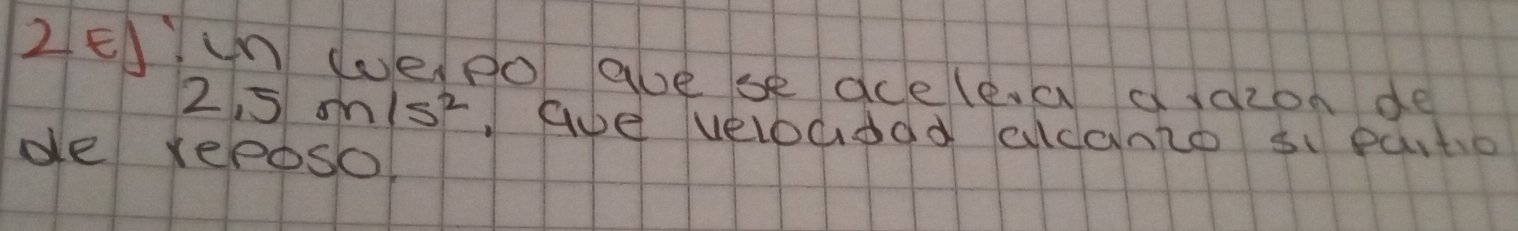 2 Ej: un cuerpo que se acelera a razon de
2,5 m/s², que velocidad alcanzo si partio
de reposo.